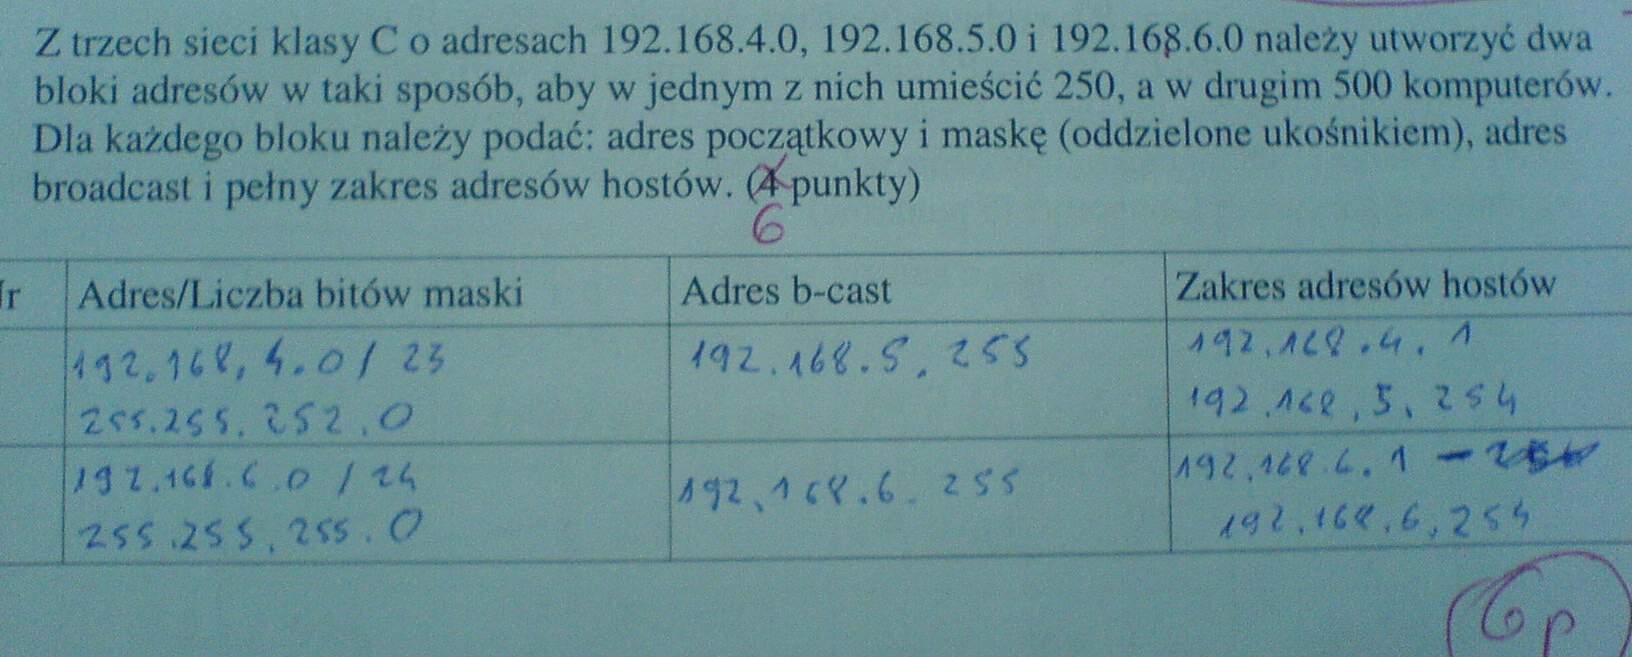 Z trzech sieci klasy C o adresach 192.168.4.0, 192.168.5.0 i 192.168.6.0 należy utworzyć dwa
bloki adresów w taki sposób, aby w jednym z nich umieścić 250, a w drugim 500 komputerów.
Dla każdego bloku należy podać: adres początkowy i maskę (oddzielone ukośnikiem), adres
broadcast i pełny zakres adresów hostów. (4 punkty)
6
r Adres/Liczba bitów maski Adres b-cast Zakres adresów hostów
192.168.4.0/23 192.168.5.255 192.168.4.1
255.255.252.0 192.168.5.254
192.168.6.0/24 192.168.6.255 192.168.6.1 -
255.255.255.0 192.168.6.254
6p